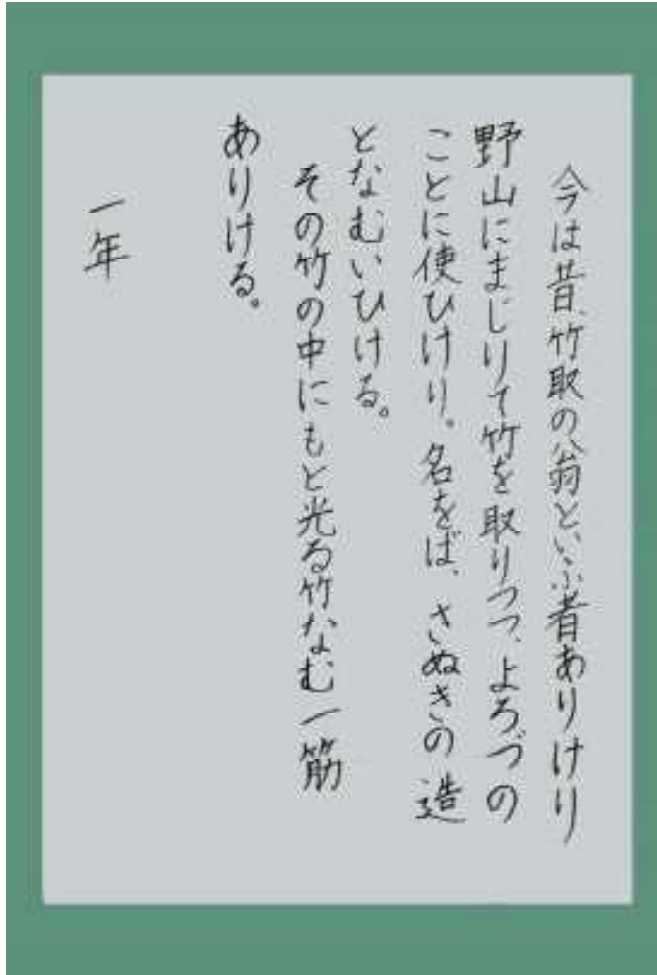 今は昔、竹取の翁といふ者ありけり
野山にまじりて竹を取りつつ、よろづの
ことに使ひけり。名をば、さぬきの造
となむいひける。
その竹の中にもと光る竹なむ一筋
ありける。
一年